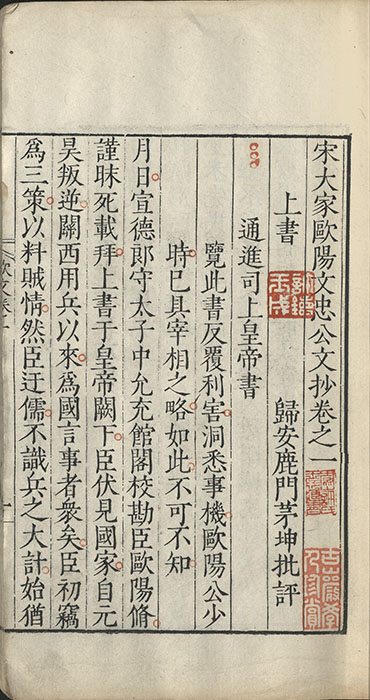 宋大家歐陽文忠公文抄卷之一
歸安鹿門茅坤批評
上書
通進司上皇帝書
覽此書反覆利害洞悉事機歐陽公少
時已具宰相之略如此不可不知
月日宣德郎守太子中允充館閣校勘臣歐陽脩
謹昧死載拜上書于皇帝闕下臣伏見國家自元
昊叛逆關西用兵以來爲國言事者衆矣臣初竊
爲三策以料賊情然臣迂儒不識兵之大計始猶